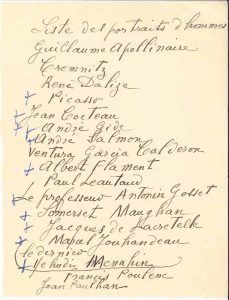 Liste des portraits d'hommes
Guillaume Apollinaire
Cremnitz
René Dalize
+ Picasso
+ Jean Cocteau
+ André Gide
+ André Salmon
Ventura Garcia Calderon
+ Albert Flament
Paul Leautaud
+ Le professeur Antonin Gosset
+ Somerset Maughan
+ Jacques de Lacretelle
+ Marcel Jouhandeau
(le dernier)
+ Yehudi Menuhin
Francis Poulenc
Jean Paulhan